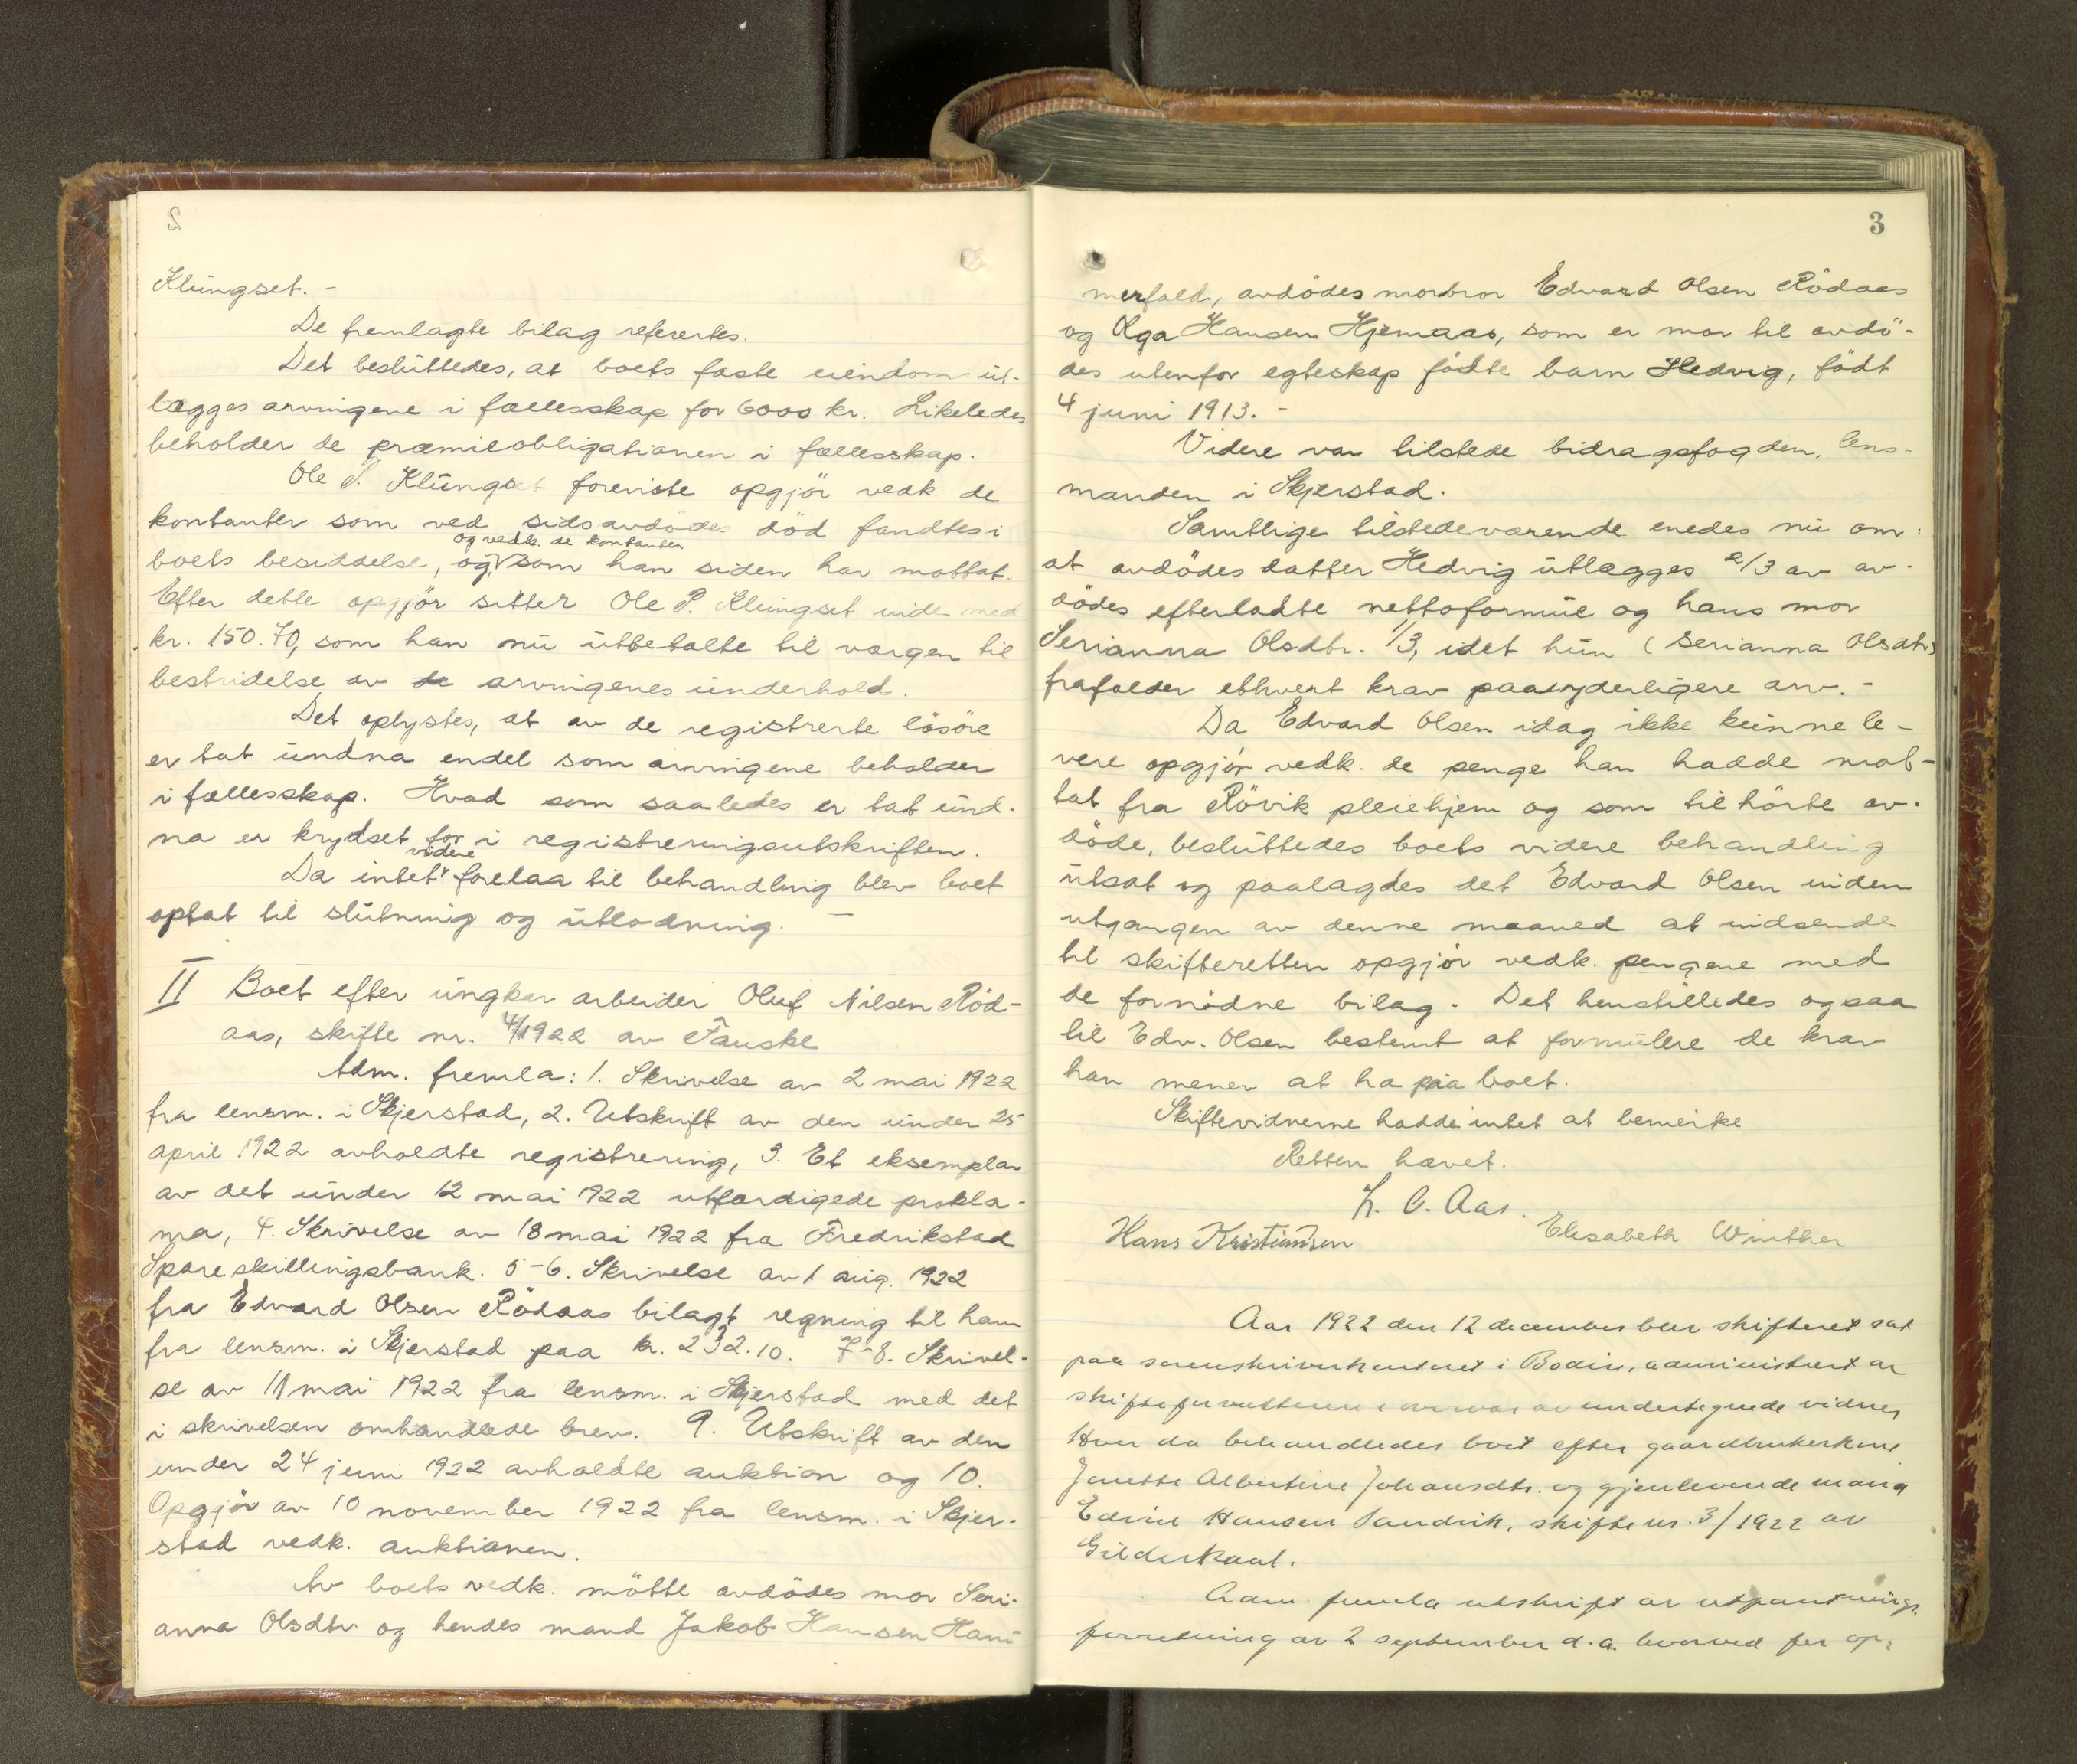 2
Klungset. -
De fremlagte bilag refertes.
Det besluttedes, at boets faste eiendom ut-
lægges arvingene i fællesskap for 6000 kr. Likeledes
beholder de præmieobligationen i fællesskap.
Ole P. Klungset foreviste opgjör vedk. de
kontanter som ved sidsavdödes död fandtes i
og vedk. de kontanter
boets besiddelse, og som han siden har mottat.
Efter dette opgjör sitter Ole P. Klungset inde med
kr. 150.70, som han nu utbetalte til vargen til
bestridelse av de arvingenes underhold.
Det oplystes, at av de registrerte lösöre
er tat undna endel som arvingene beholder
i fællesskap. Hvad som saaledes er tat und-
na er krydset for i registreringsutskriften.
videre
Da intet forelaa til behandling blev boet
optat til slutning og utlodning. -
II Boet efter ungkar arbeider Oluf Nilsen Röd-
aas, skifte nr. 4/1922 av Fauske
Adm. fremla: 1. Skrivelse av 2 mai 1922
fra lensm. i Skjerstad, 2. Utskrift av den under 25
april 1922 avholdte registrering, 3. Et eksemplar
av det under 12 mai 1922 utfærdigede prokla-
ma, 4. Skrivelse av 18 mai 1922 fra Fredrikstad
Spareskillingsbank. 5-6. Skrivelse av 1 aug. 1922
fra Edvard Olsen Rödaas bilagt regning til ham
fra lensm. i Skjerstad paa kr. 232.10. 7-8. Skrivel-
se av 11 mai 1922 fra lensm. i Skjerstad med det
i skrivelsen omhandlede brev. 9. Utskrift av den
under 24 juni 1922 avholdte auktion og 10.
Opgjör av 10 november 1922 fra lensm. i Skjer-
stad vedk. auktionen.
Av boets vedk. mötte avdödes mor Seri-
anna Olsdtr. og hendes mand Jakob Hansen Ham-
3
merfald, avdödes morbror Edvard Olsen Rödaas
og Olga Hansen Hjemaas, som er mor til avdö-
des utenfor egteskap födte barn Hedvig, födt
4 juni 1913. -
Videre var tilstede bidragsfogden, lens-
manden i Skjerstad.
Samtlige tilstedeværende enedes nu om:
at avdödes datter Hedvig utlægges 2/3 av av-
dödes efterladte nettoformue og hans mor
Serianna Olsdtr. 1/3, idet hun (Serianna Olsdtr)
frafalder ethvert krav paa yderligere arv. -
Da Edvard Olsen idag ikke kunne le-
vere opgjör vedk. de penge han hadde mot-
tat fra Rövik pleiehjem og som tilhörte av-
döde, besluttedes boets videre behandling
utsat og paalagdes det Edvard Olsen inden
utgangen av denne maaned at indsende
til skifteretten opgjör vedk. pengene med
de fornödne bilag. Det henstilledes ogsaa
til Edv. Olsen bestemt at formulere de krav
han mener at ha paa boet.
Skiftevidnerne hadde intet at bemerke
Retten hævet.
L. C. Aas.
Hans Kristiansen Elisabeth Winther
Aar 1922 den 12 december blev skifteret sat
paa sorenskriverkontoret i Bodin, administrert av
skifteforvalteren i overvær av undertegnede vidner,
Hvor da behandledes boet efter gaardbrukerkone
Albertine Johansdtr. og gjenlevende mand
Hansen Sandvik, skifte nr. 3/1922 av
Gildeskaal.
Adm. fremla utskrift av utpantnings-
forretning av 2 september d.a. hvorved for op-